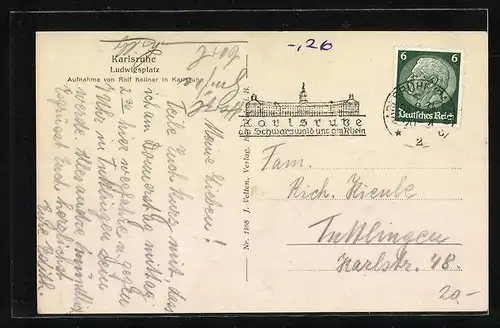 Karlsruhe
Ludwigsplatz
Aufnahme von Rolf Kellner in Karlsruhe
-,26
6 6
Deutsches Reich
Karlsruhe
am Schwarzwald und am Rhein
2
Meine Lieben!
Teile Euch kurz mit, dass
ich am Donnerstag mittag
hier wegfahre u. gegen
in Tuttlingen sein
werde. Alles andre mündlich
grüsst Euch herzlichst
Eure
Nr. 1105 J. Velten, Verlag,
Fam.
Rich. Kienle
Tuttlingen
Karlstr. 48.
20-